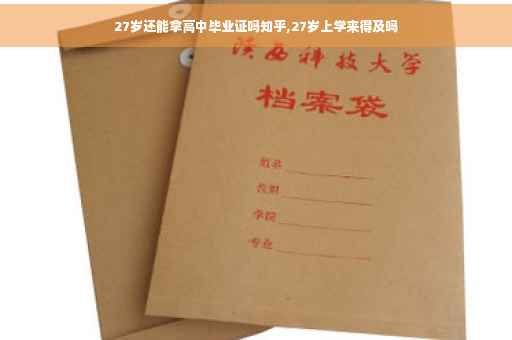 27岁还能拿高中毕业证吗知乎,27岁上学来得及吗
陕西科技大学
档案袋
姓名
学院
专业